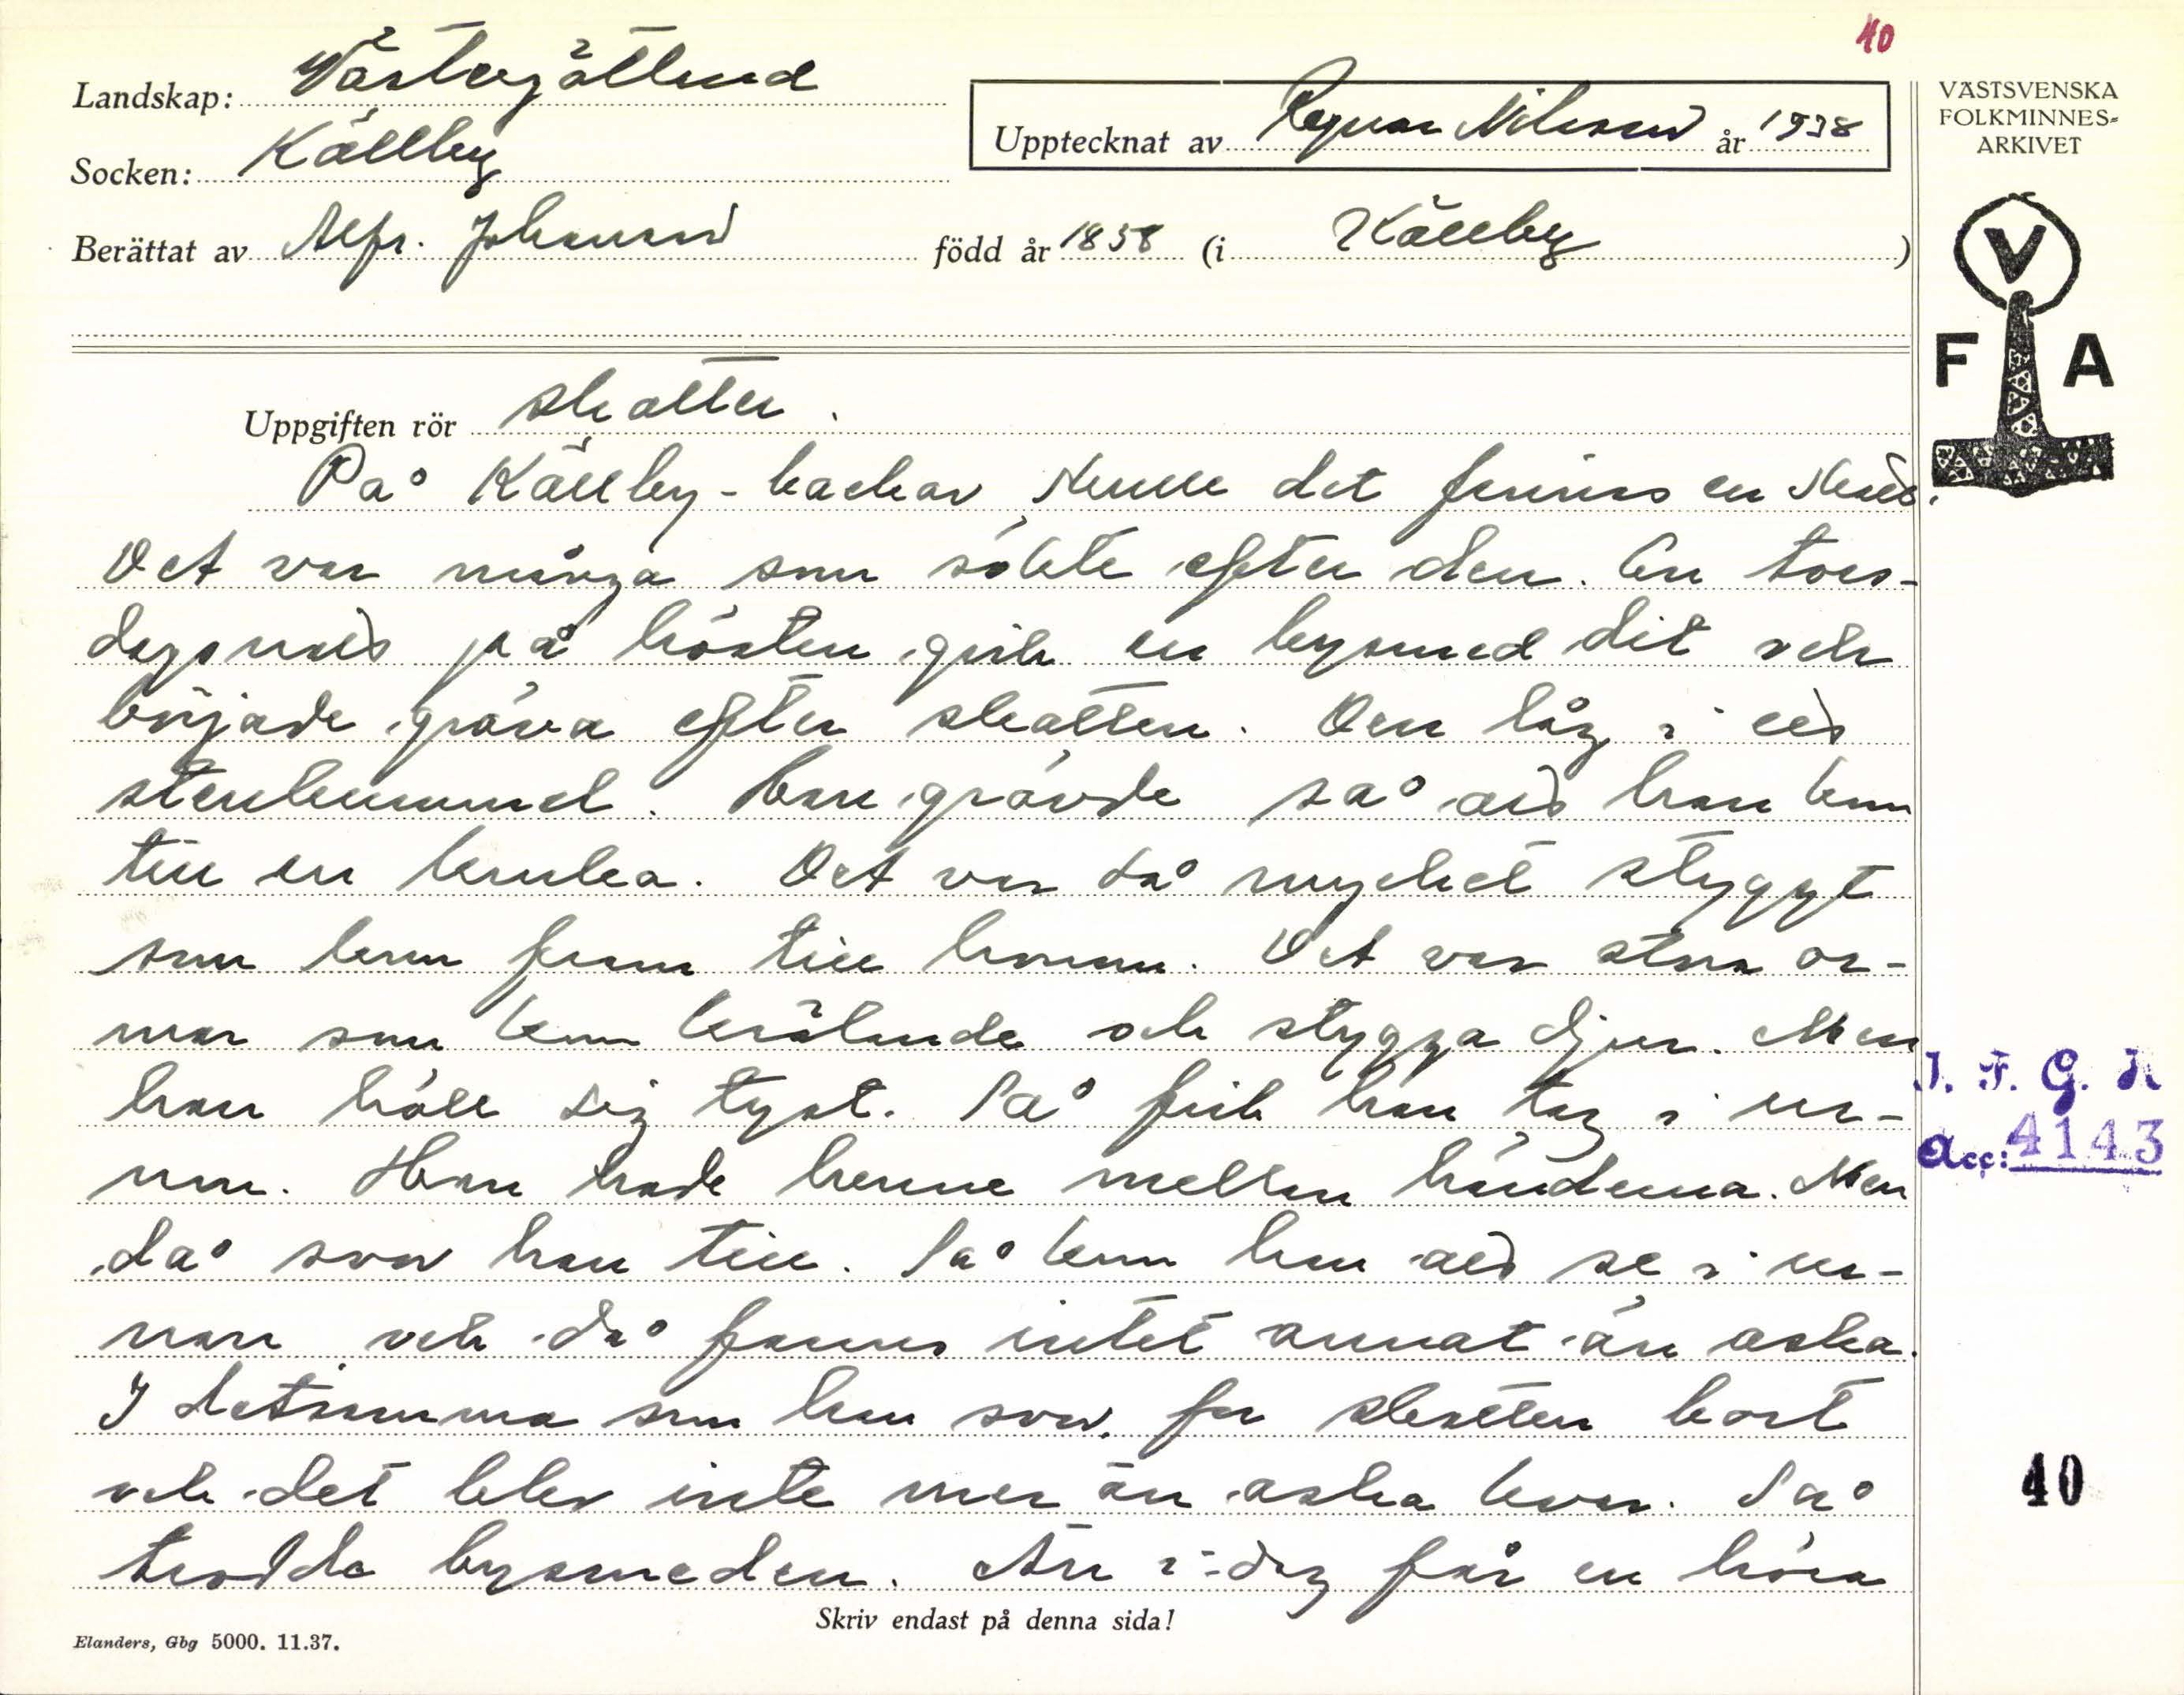 10
Landskap: Västergötland
Socken: Källby
Upptecknat av Ragnar Nilsson år 1938
Berättat av Alfr. Johansson född år 1858 (i Källby)
VÄSTSVENSKA
FOLKMINNES=
ARKIVET
V
F A
Uppgiften rör skatter.
På Källby-backar skulle det finnas en skatt.
Det var många som sökte efter den. En tors-
dagsnatt på hösten gick en bysmed dit och
började gräva efter skatten. Den låg i ett
stenkummel. Han grävde så att han kom
till en kruka. Det var då mycket styggt
som kom fram till honom. Det var stora or-
mar som kom krälande och stygga djur. Men
han höll sig tyst. Så fick han tag i ur-
nan. Han hade henne mellan händerna. Men
då svor han till. Så kom han att se i ur-
nan och då fanns intet annat än aska.
I detsamma som han svor, for skatten bort
och det blev inte mer än aska kvar. Så
trodde bysmeden. Än i-dag får en höra
J. F. G. H
Acc: 4143
40
Skriv endast på denna sida!
Elanders, Gbg 5000. 11.37.